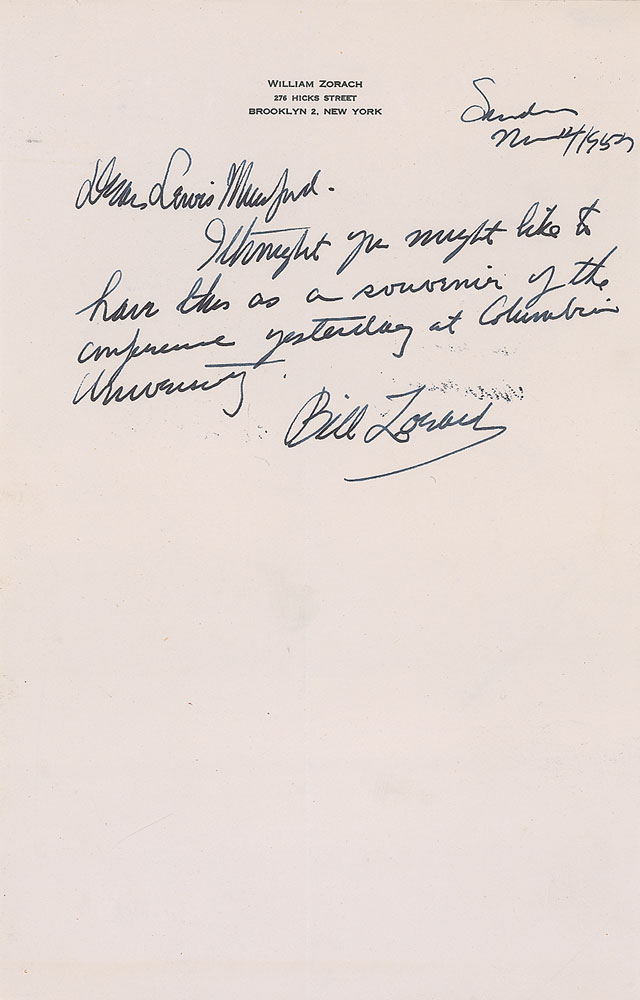 WILLIAM ZORACH
276 HICKS STREET
BROOKLYN 2, NEW YORK
Sunday
14/1954
Dear Lewis Mumford.
I thought you might like to
have this as a souvenir of the
conference yesterday at Columbia
University.
Bill Zorach